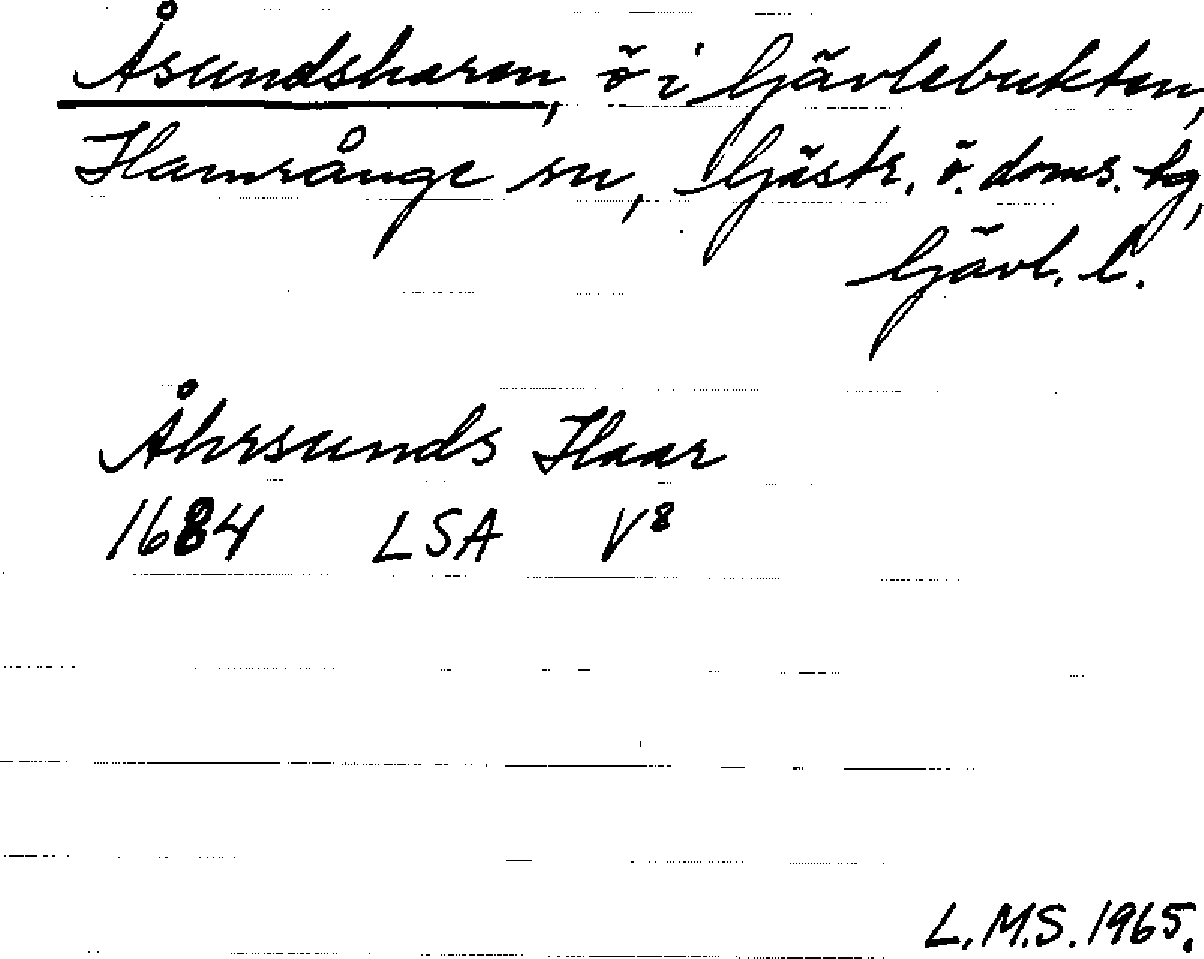 Åsundsharen, ö i Gävlebukten,
Hamrånge sn, Gästr. ö. doms. hg,
Gävl. l.
Åhrsunds Haar
1684 LSA V8
L.M.S. 1965.